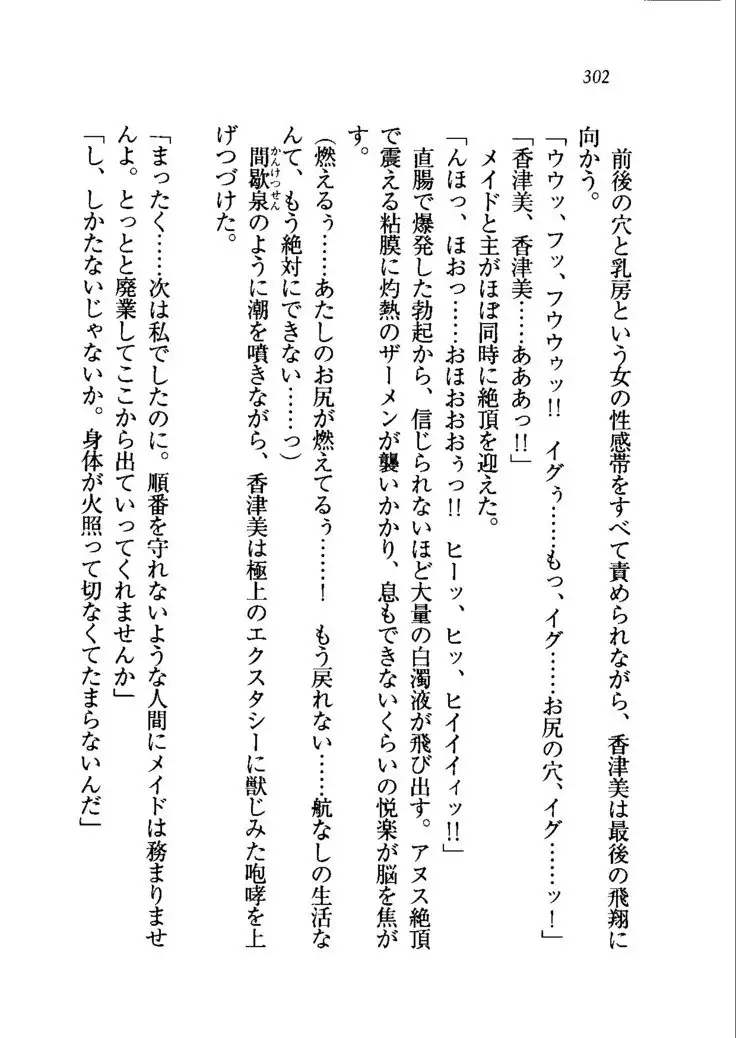 302
前後の穴と乳房という女の性感帯をすべて責められながら、香津美は最後の飛翔に
向かう。
「ウウッ、フッ、フウウゥッ!! イグぅ……もっ、イグ……お尻の穴、イグ……ッ!」
「香津美、香津美……あああっ!!」
メイドと主がほぼ同時に絶頂を迎えた。
「んほっ、ほおっ……おほおおおぅっ!! ヒーッ、ヒッ、ヒイイイィッ!!」
直腸で爆発した勃起から、信じられないほど大量の白濁液が飛び出す。アヌス絶頂
で震える粘膜に灼熱のザーメンが襲いかかり、息もできないくらいの悦楽が脳を焦が
す。
(燃えるぅ……あたしのお尻が燃えてるぅ……! もう戻れない……航なしの生活な
んて、もう絶対にできない……っ)
間歇泉のように潮を噴きながら、香津美は極上のエクスタシーに獣じみた咆哮を上
かんけつせん
げつづけた。
「まったく……次は私でしたのに。順番を守れないような人間にメイドは務まりませ
んよ。とっとと廃業してここから出ていってくれませんか」
「し、しかたないじゃないか。身体が火照って切なくてたまらないんだ」